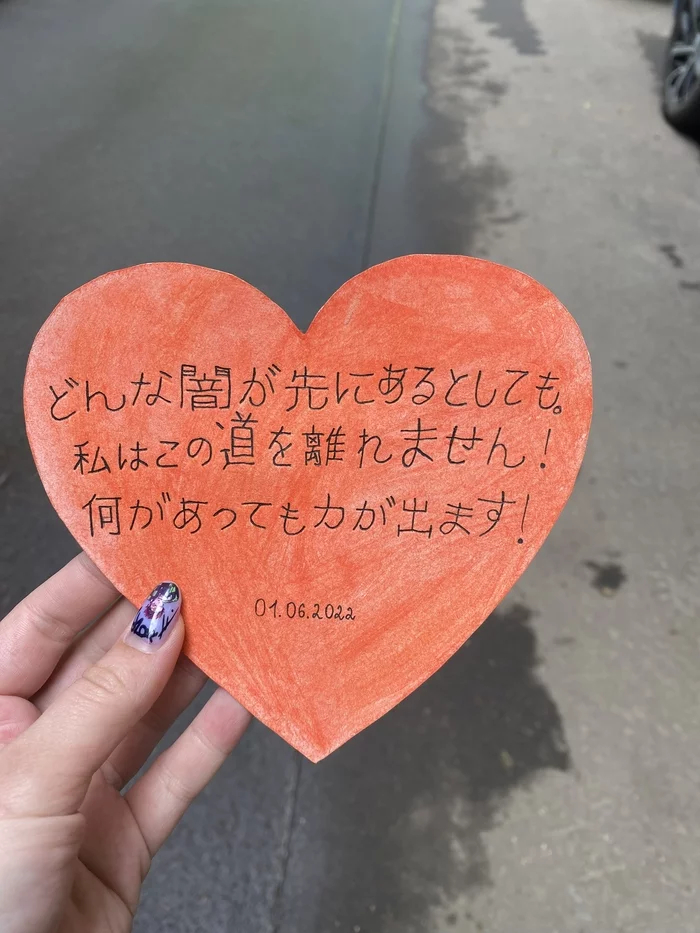 どんな闇が先にあるとしても。
私はこの道を離れません!
何があっても力が出ます!
01.06.2022